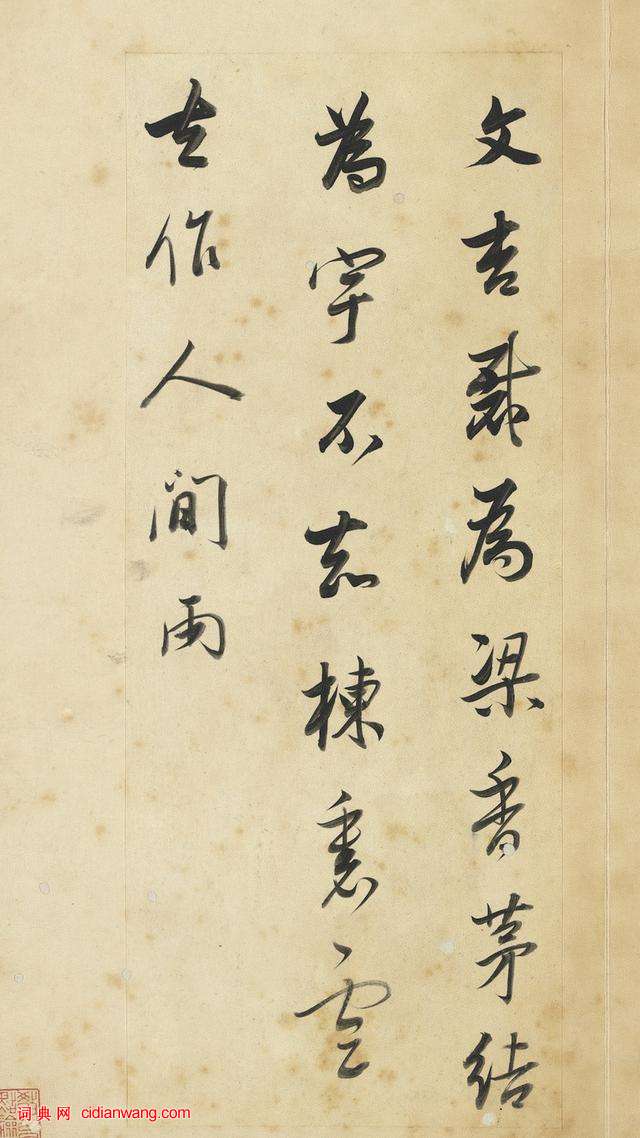 文杏裁為梁香茅結
為宇不知棟裏雲
去作人間雨
词典网 cidianwang.com